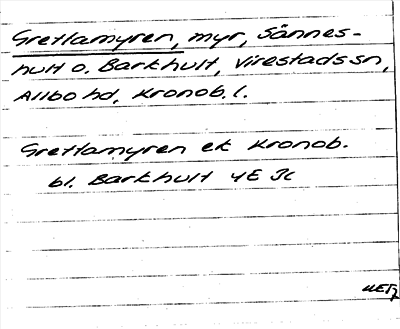 Gretlamyren, myr, Sännes-
hult o. Barkhult, Virestads sn,
Allbo hd, Kronob. l.
Gretlamyren ek Kronob.
bl. Barkhult 4E Jc